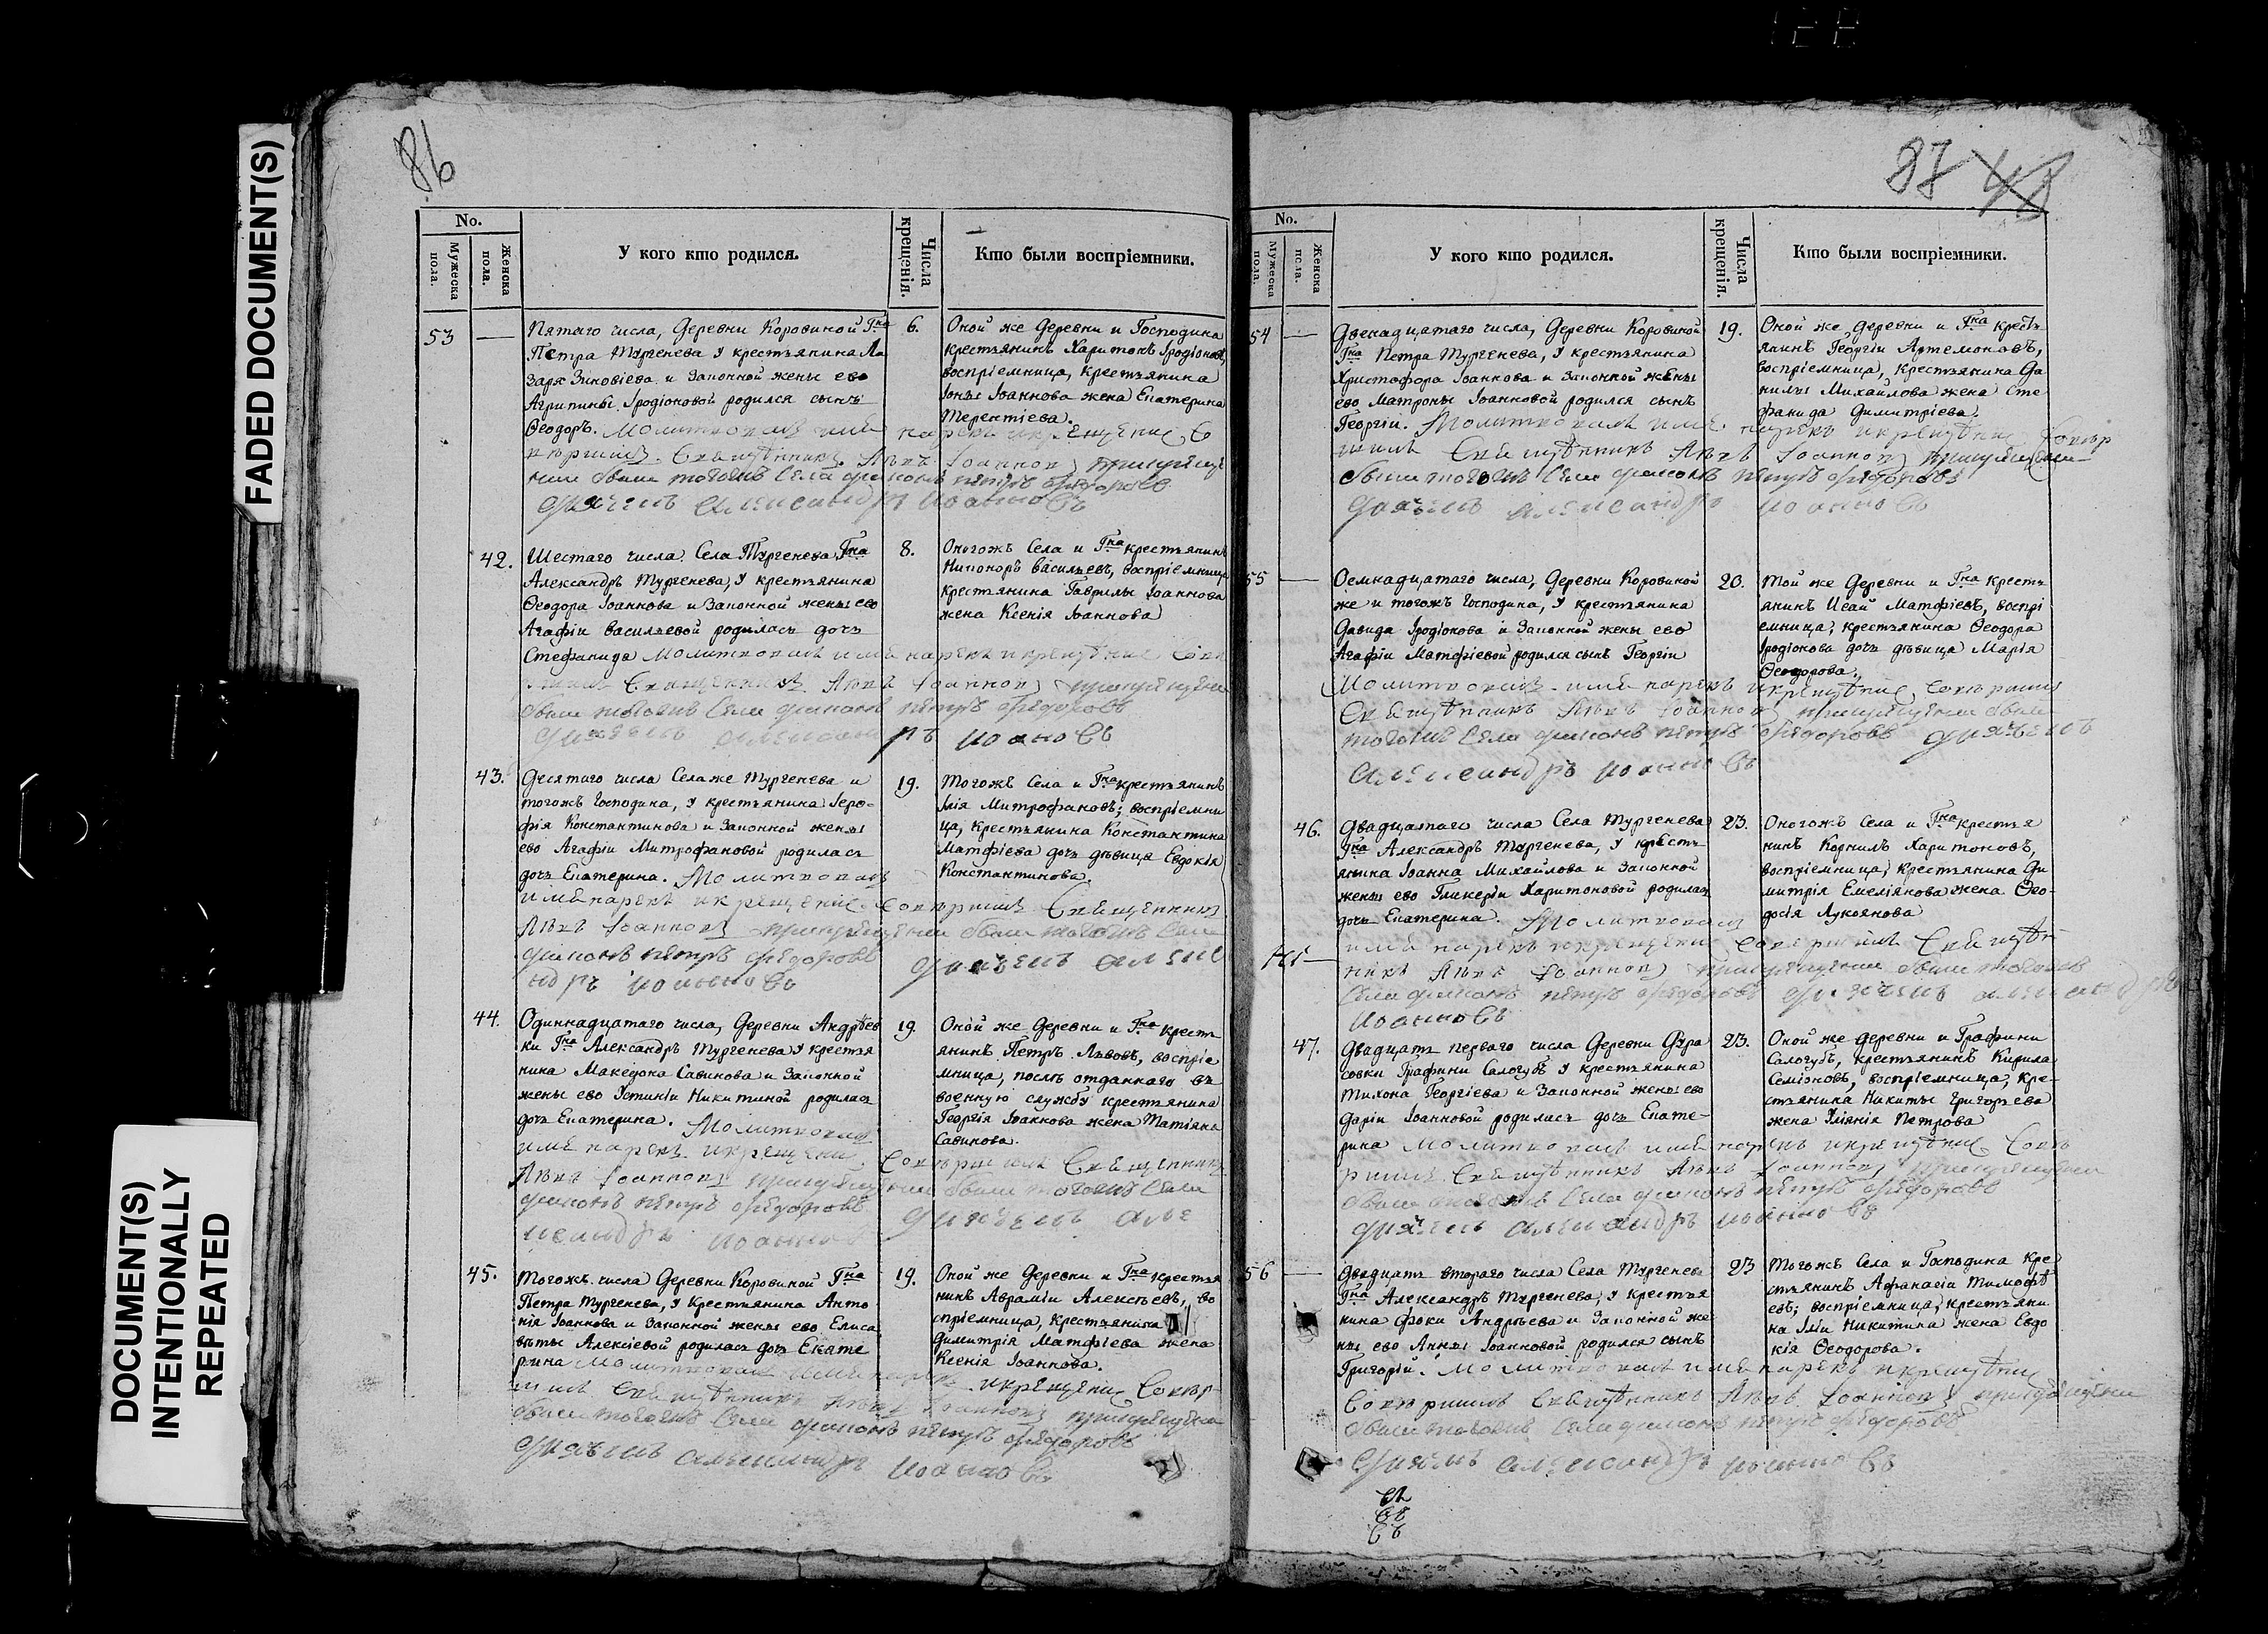 FADED DOCUMENT(S)
DOCUMENT(S)
INTENTIONALLY
REPEATED
86
No.
Мужеска пола.
Женска пола.
У кого кто родился.
Числа крещенія.
Кто были воспріемники.
53
Пятаго числа, Деревни Коровиной Гна
Петра Тургенева у крестьянина Ла
заря Зиновіева и законной жены ево
Агрипины Іродіоновой родился сынъ
Ѳеодоръ. Молитвовалъ имя нарекъ и крещеніе со
вершилъ Священникъ Левъ Іоанновъ
того жъ села дьяконъ Петръ Федоровъ
дьячекъ Александръ Иоанновъ
6.
Оной же Деревни и Господина
крестьянинъ Харитонъ Іродіоновъ,
воспріемница, крестьянина
Іоны Іоаннова жена Екатерина
Терентіева.
42.
Шестаго числа Села Тургенева Гна
Александръ Тургенева, у крестьянина
Ѳеодора Іоаннова и Законной жены ево
Агафіи Васильевой родилась дочь
Стефанида Молитвовалъ имя нарекъ и крещеніе
Священникъ Левъ Іоанновъ
были того жъ села дьяконъ Петръ Федоровъ
дьячекъ Александръ Иоановъ
8.
Оногожъ Села и Гна крестьянинъ
Никоноръ Васильевъ, воспріемница
крестьянина Гаврилы Іоаннова
жена Ксенія Іоаннова
43.
Десятаго числа Села же Тургенева и
тогожъ Господина, у крестьянина Іеро-
фія Константинова и Законной жены
ево Агафіи Митрофановой родилась
дочь Екатерина. Молитвовалъ
имя нарекъ и крещеніе совершилъ Священникъ
Левъ Іоанновъ были того жъ села
дьяконъ Петръ Федоровъ дьячекъ Алекса
ндръ Иоанновъ
19.
Тогожъ Села и Гна крестьянинъ
Ілія Митрофановъ; воспріемни
ца, крестьянина Константина
Матфіева дочь дѣвица Евдокія
Константинова.
44.
Одиннадцатаго числа, Деревни Андрѣев
ки Гна Александръ Тургенева у крестья
нина Македона Савинова и Законной
жены ево Устиніи Никитиной родилась
дочь Екатерина. Молитвовалъ
имя нарекъ и крещеніе совершилъ Священникъ
Левъ Іоанновъ были того жъ села
дьяконъ Петръ Федоровъ дьячекъ Але
ксандръ Иоаннов
19
Оной же Деревни и Гна кресть
янинъ Петръ Львовъ, воспріе
мница, послѣ отданнаго въ
военную службу крестьянина
Георгія Іоаннова жена Татіяна
Савинова.
45.
Тогожъ числа Деревни Коровиной Гна
Петра Тургенева, у Крестьянина Анто
нія Іоаннова и Законной жены ево Елиса
вѣты Алексіевой родилась дочь Екате
рина Молитвовалъ имя нарекъ и крещеніе совер
шилъ Священникъ Левъ Іоанновъ
были того жъ села дьяконъ Петръ Федоровъ
дьячекъ Александръ Иоанновъ
19.
Оной же Деревни и Гна крестья
нинъ Авраміи Алексѣевъ, во
спріемница, крестьянина
Димитрія Матфіева жена
Ксенія Іоаннова.
87
48
No.
Мужеска пола.
Женска пола.
У кого кто родился.
Числа крещенія.
Кто были воспріемники.
54
Двенадцатаго числа, Деревни Коровиной
Гна Петра Тургенева, у крестьянина
Христофора Іоаннова и Законной жены
ево Матроны Іоанновой родился сынъ
Георгіи. Молитвовалъ имя нарекъ и крещеніе совер
шилъ Священникъ Левъ Іоанновъ
были того жъ села дьяконъ Петръ Федоровъ
дьячекъ Александръ Иоанновъ
19.
Оной же Деревни и Гна кресть
янинъ Георгіи Артемоновъ,
воспріемница, крестьянина Да
нилы Михайлова жена Сте
фанида Димитріева.
55
Осемнадцатаго числа, Деревни Коровиной
же и тогожъ Господина, у крестьянина
Давида Іродіонова и Законной жены ево
Агафіи Матфіевой родился сынъ Георгіи
Молитвовалъ имя нарекъ и крещеніе совершилъ
Священникъ Левъ Іоанновъ были
того жъ села дьяконъ Петръ Федоровъ дьячекъ
Александръ Иоанновъ
20.
Той же Деревни и Гна кресть
янинъ Исаи Матфіевъ, воспрі
емница, крестьянина Ѳеодора
Іродіонова дочь дѣвица Марія
Ѳеодорова.
46.
Двадцатаго числа Села Тургенева
Гна Александръ Тургенева, у кресть
янина Іоанна Михайлова и Законной
жены ево Гликеріи Харитоновой родилась
дочь Екатерина. Молитвовалъ
имя нарекъ и крещеніе совершилъ Священ
никъ Левъ Іоанновъ были того жъ
села дьяконъ Петръ Федоровъ дьячекъ Александръ
Иоанновъ
23.
Оногожъ Села и Гна крестья
нинъ Корнилъ Харитоновъ,
воспріемница, крестьянина Ди
митрія Емеліянова жена Ѳео-
досія Лукоянова
47.
Двадцать перваго числа Деревни Дура
совки Графини Салогубъ у крестьянина
Тихона Георгіева и Законной жены ево
Даріи Іоанновой родилась дочь Екате-
рина Молитвовалъ имя нарекъ и крещеніе сове
ршилъ Священникъ Левъ Іоанновъ
были того жъ села дьяконъ Петръ Федоровъ
дьячекъ Александръ Иоанновъ
23.
Оной же Деревни и Графини
Салогубъ, крестьянинъ Кирила
Семіоновъ, воспріемница, кре-
стьянина Никиты Григорьева
жена Уліянія Петрова
56
Двадцать втораго числа Села Тургенева
Гна Александръ Тургенева, у крестья
нина Фоки Андрѣева и Законной же
ны ево Анны Іоанновой родился сынъ
Григорій. Молитвовалъ имя нарекъ и крещеніе
совершилъ Священникъ Левъ Іоанновъ
были того жъ села дьяконъ Петръ Федоровъ
дьячекъ Александръ Иоанновъ
23
Тогожъ Села и Господина кре
стьянинъ Афанасіи Тимофѣ
евъ; воспріемница, крестьяни
на Іліи Никитина жена Евдо
кія Ѳеодорова.